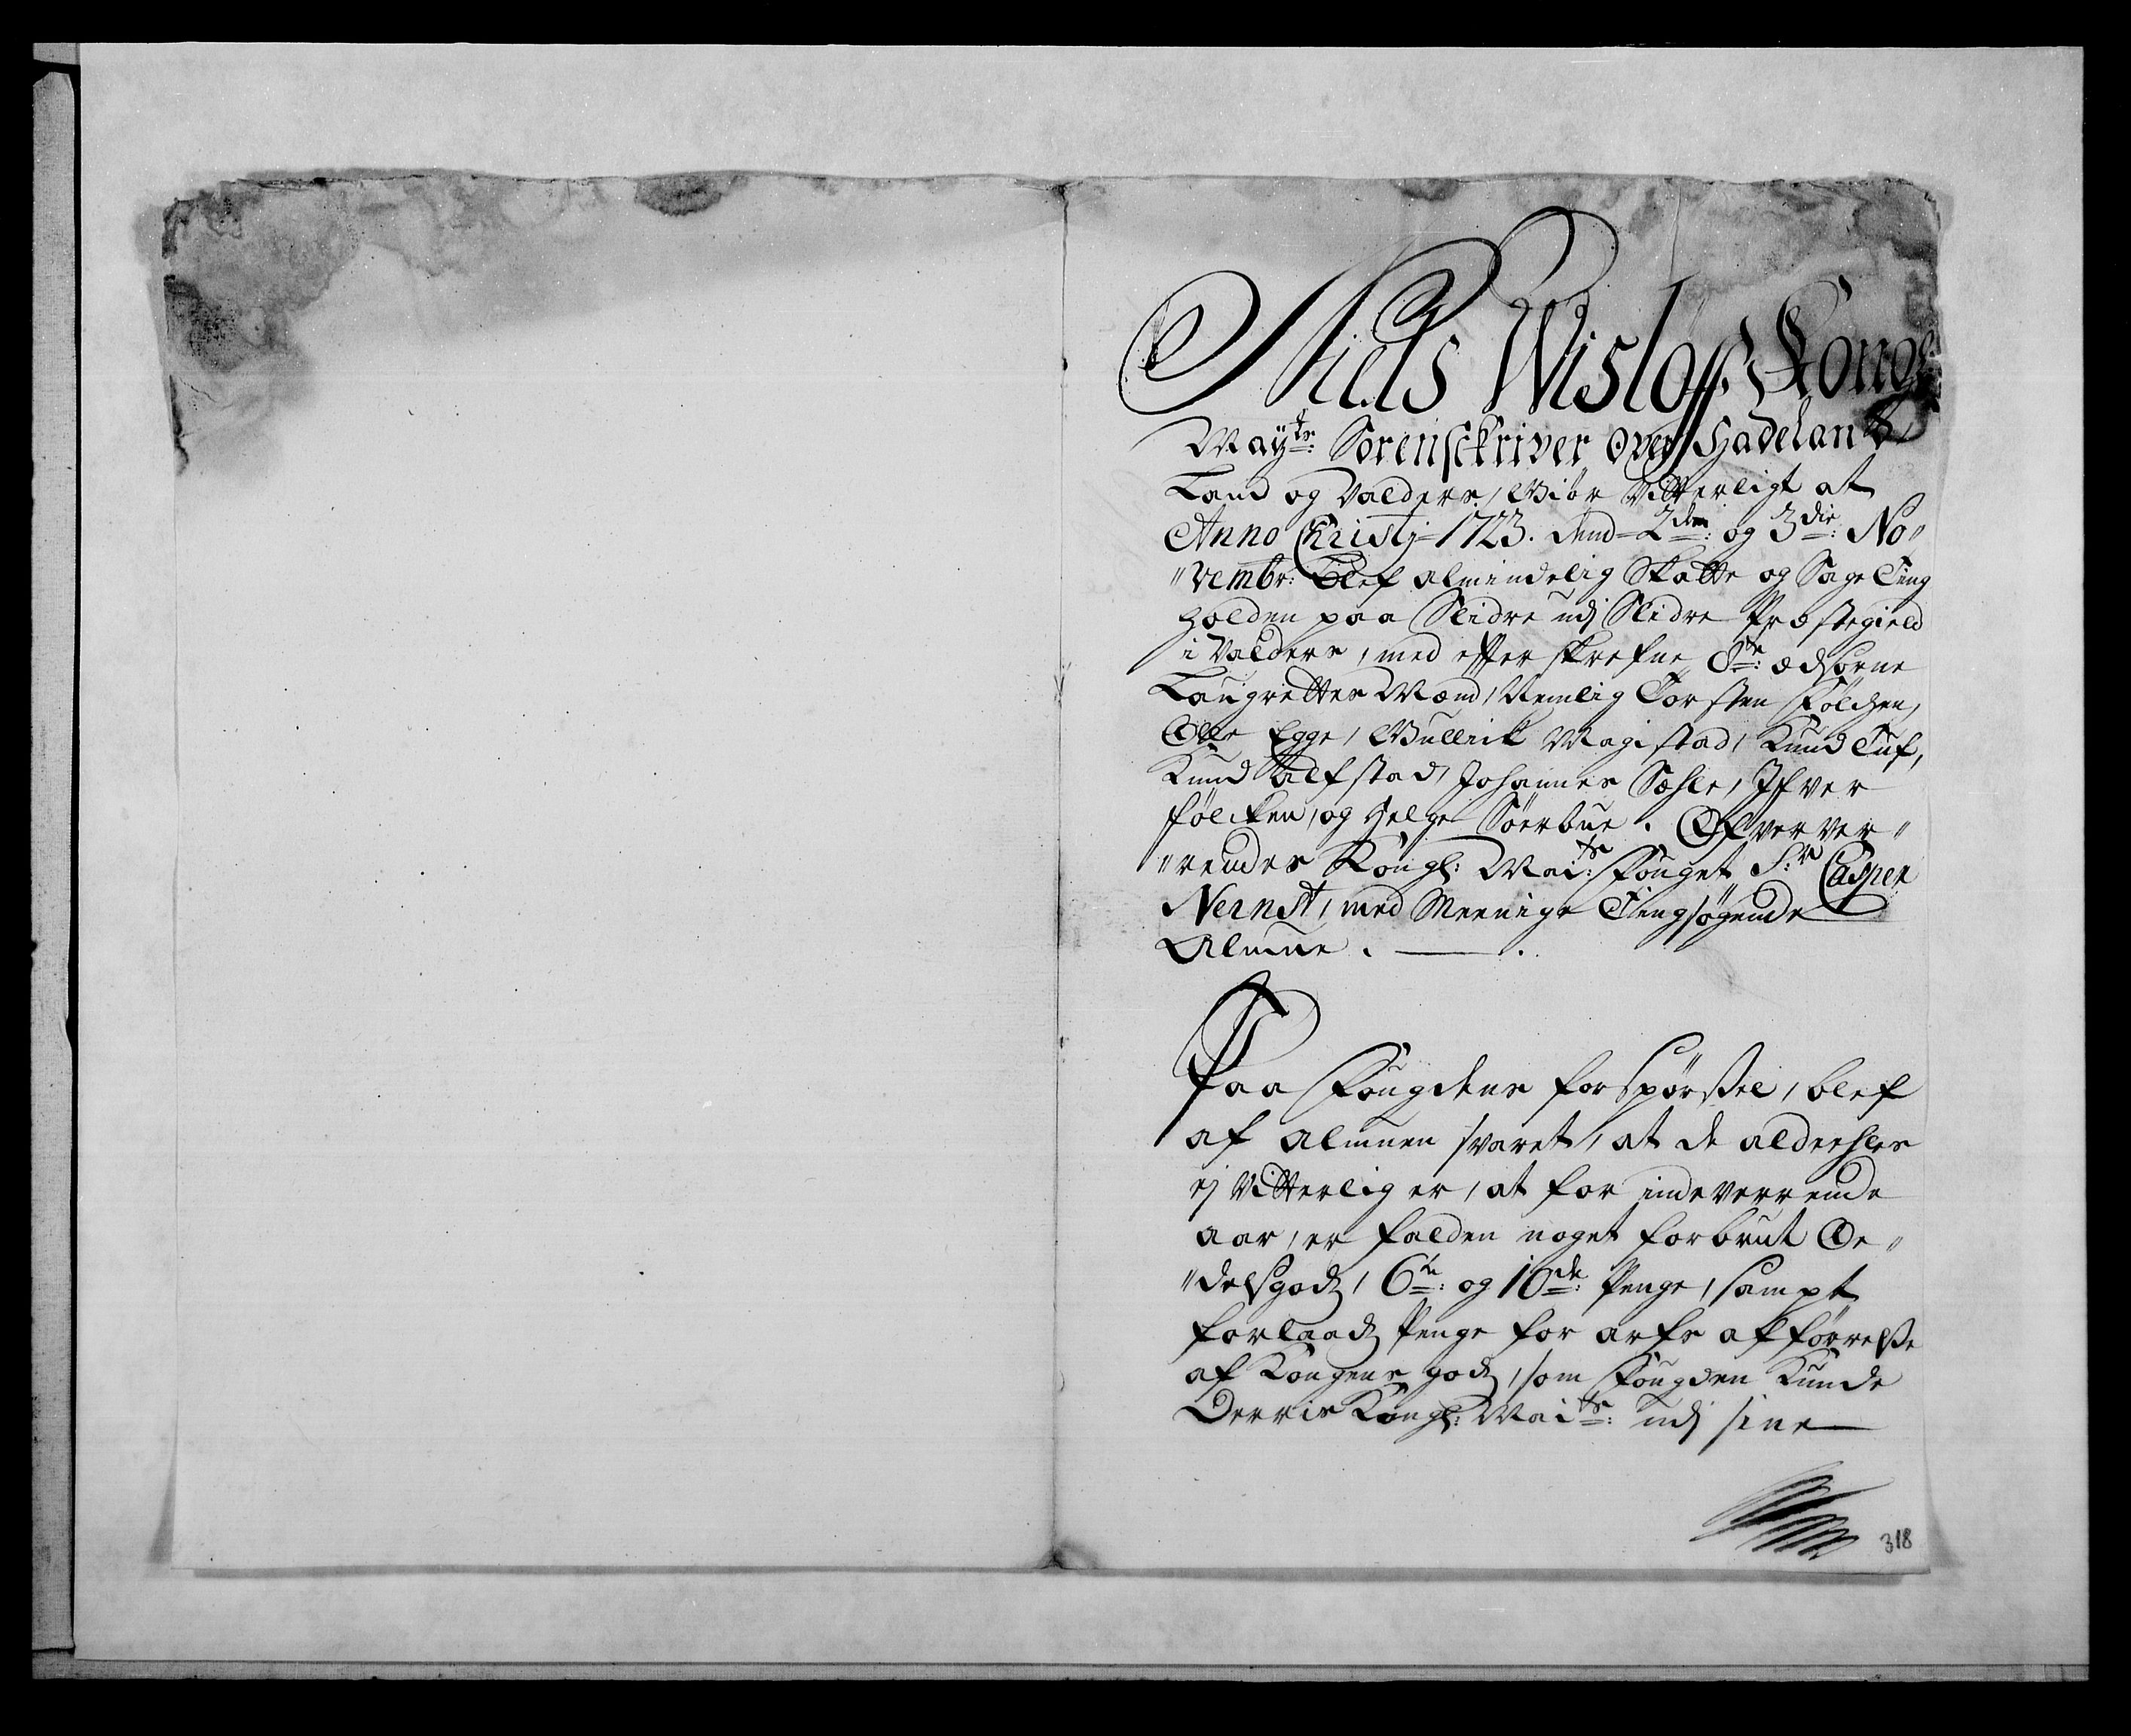 Niels Wisløff Kongl:
Mayts: Sorenschriver over Hadeland
Land og Valders, Giør Vitterligt at
Anno Christj 1723. dend 2den: og 3die: No„
„vembr: Blef almindelig Skatte og Sage Ting
holden paa Slidre udj Slidre Prestegield
i Valders, med efterskrefne 8te: ædsorne
Laugrettes Mænd, Nemlig Torsten Følchen,
Olle Egge, Gullrik Magistad, Knud Tuf,
Knud Alfstad, Johannes Sæhle, Ifver
Følcken, og Helge Sørbue. Ofverver„
„rendes Kongl: Maits: Fouget Sr: Casper
Nernst, med Meenige Tingsøgende
Almue.
Paa Fougdens forspørsel, blef
af Almuen svaret, at de aldeehles
ej Vitterlig er, at for indeverrende
aar, er falden noget forbrut Oe„
„delsgods, 6te: og 10de: Penge, sampt
forlaads Penge for arfs afførrelse
af Kongens gods, som Fougden Kunde
Derris Kongl: Maits: udj sine
318